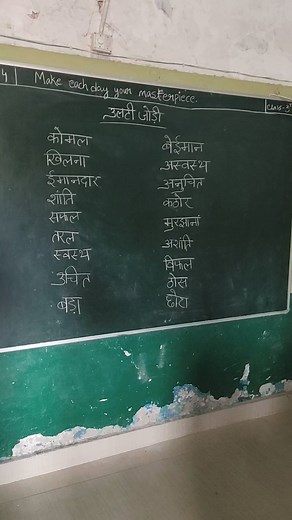 4 Make each day your masterpiece. Class-5
उलटी जोड़ी
कोमल बेईमान
खिलना अस्वस्थ
ईमानदार अनुचित
शांति कठोर
सफल मुरझाना
तरल अशांति
स्वस्थ विफल
उचित ठोस
बड़ा छोटा